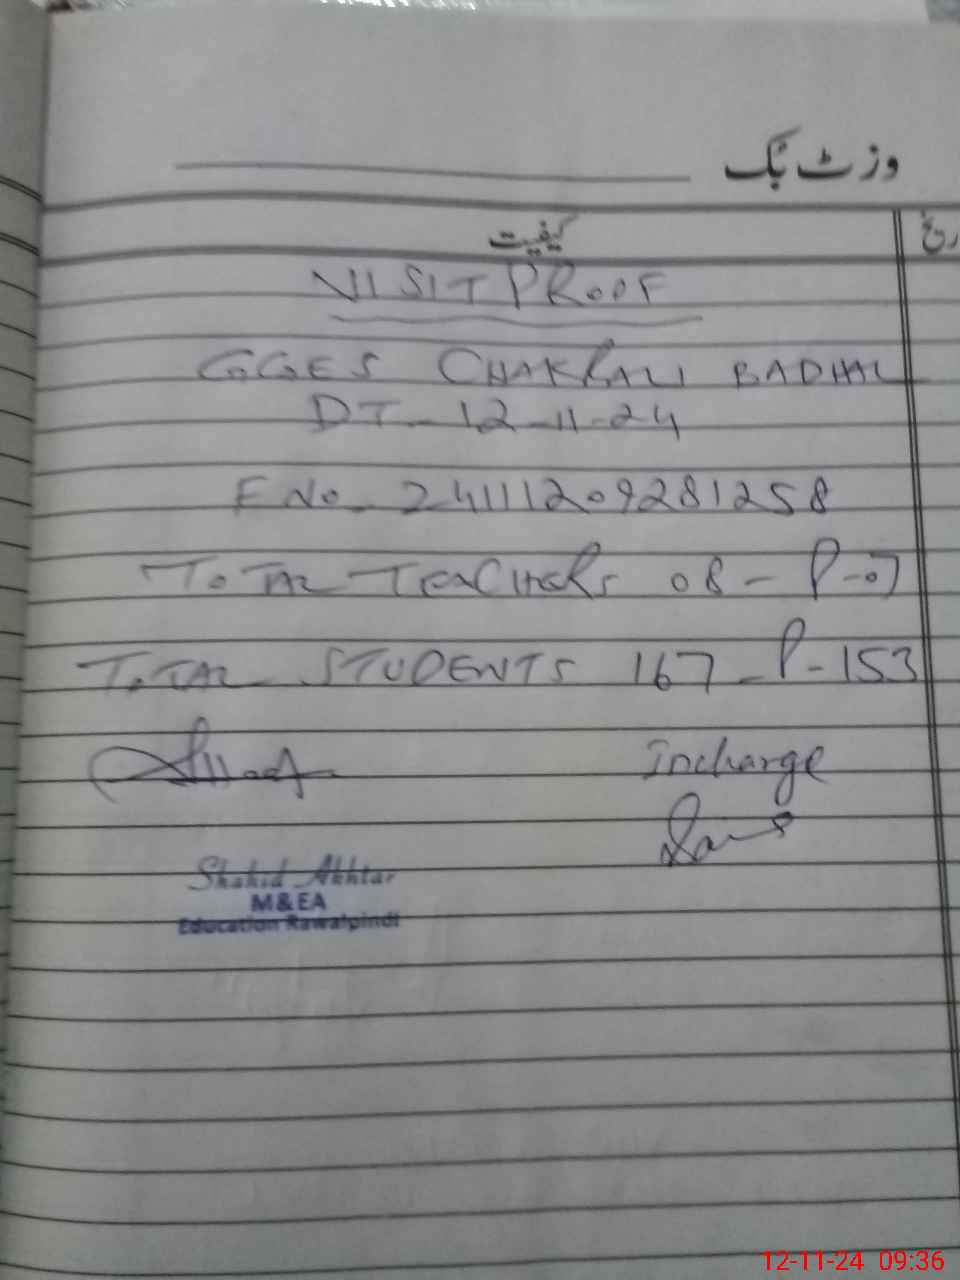 وزٹ بک
کیفیت
VISIT PROOF
GGES CHAKRALI BADHAL
DT - 12-11-24
F No - 24111209281258
TOTAL TEACHERS 08 - P-07
TOTAL STUDENTS 167 - P-153
Incharge
Shahid Akhtar
M&EA
Education Rawalpindi
12-11-24 09:36